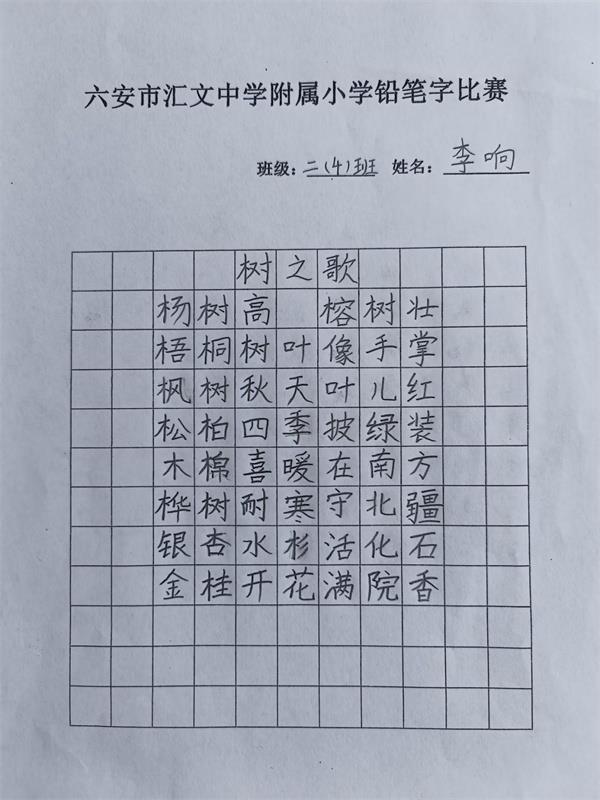 六安市汇文中学附属小学铅笔字比赛
班级:二(4)班 姓名:李响
树之歌
杨树高 榕树壮
梧桐树叶像手掌
枫树秋天叶儿红
松柏四季披绿装
木棉喜暖在南方
桦树耐寒守北疆
银杏水杉活化石
金桂开花满院香